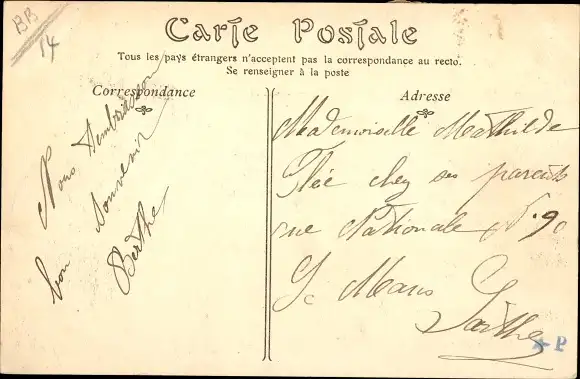 BB
14
Carte Postale
Tous les pays étrangers n'acceptent pas la correspondance au recto.
Se renseigner à la poste
Correspondance
Adresse
Nous
bon Souvenir
Berthe
Mademoiselle Mathilde
chez ses parents
rue Nationale N° 90
Le Mans
Sarthe
P